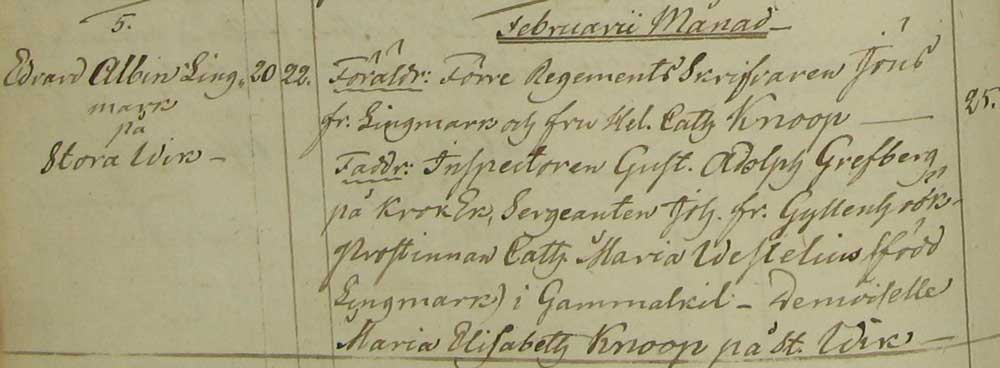 Februarii Månad
5.
Edvard Albin Ling-
mark
på
Stora Wik –
20
22.
Föräldr: Förre Regements Skrifvaren Jöns
fr. Lingmark och fru Hel. Cath Knoop
25.
Faddr: Inspectoren Gust. Adolph Grefberg
på KrokEk, Sergeanten Joh. fr. Gyllenhöök
Prostinnan Cath Maria Westelius (född
Lingmark) i Gammalkil – Demoiselle
Maria Elisabeth Knoop på St. Wik –